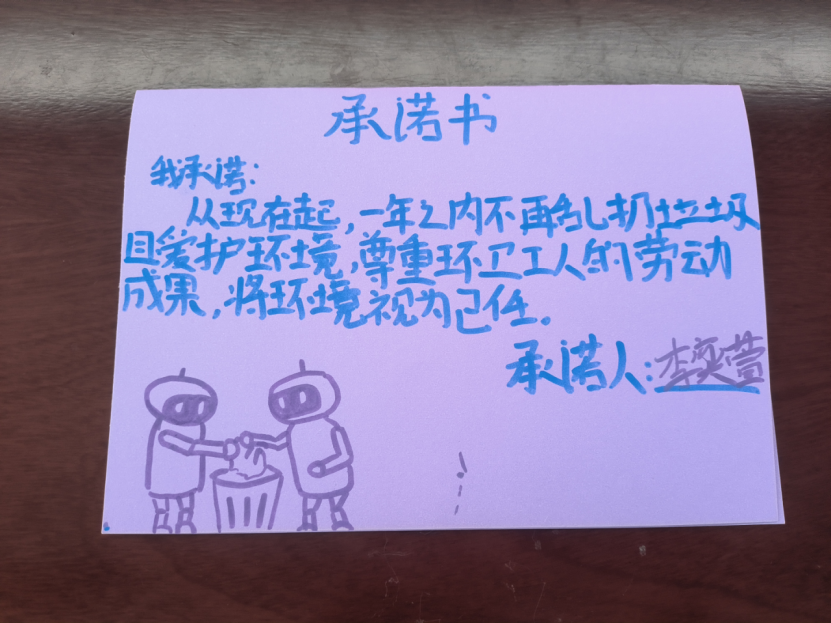 承诺书
我承诺:
从现在起,一年之内不再乱扔垃圾
且爱护环境,尊重环卫工人的劳动
成果,将环境视为己任。
承诺人:李奕萱